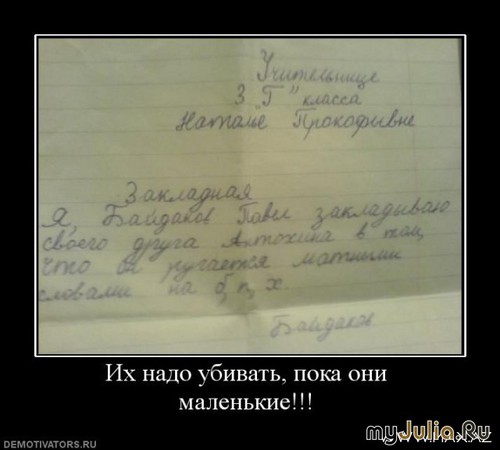 Учительнице
3 "Г" класса
Наталье Прокофивне
Закладная
Я, Байдаков Павел закладываю
своего друга Антохина в том,
что он ругается матными
словами на б, п, х
Байдаков
Их надо убивать, пока они
маленькие!!!
DEMOTIVATORS.RU
myJulia.Ru